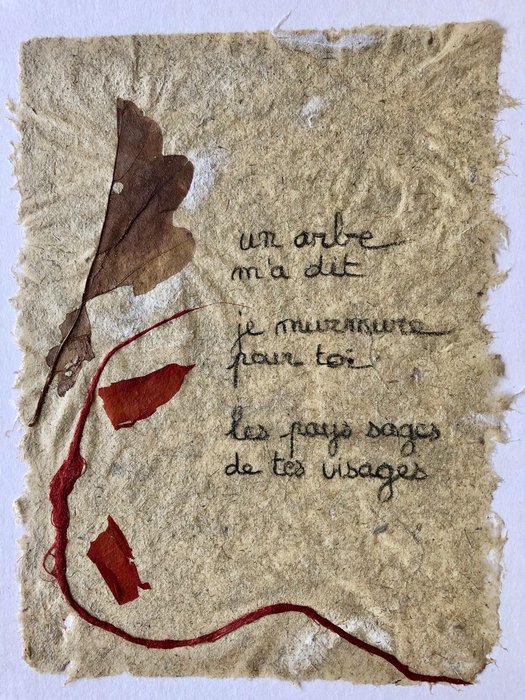 un arbre
m'a dit
je murmure
pour toi
les pays sages
de tes visages